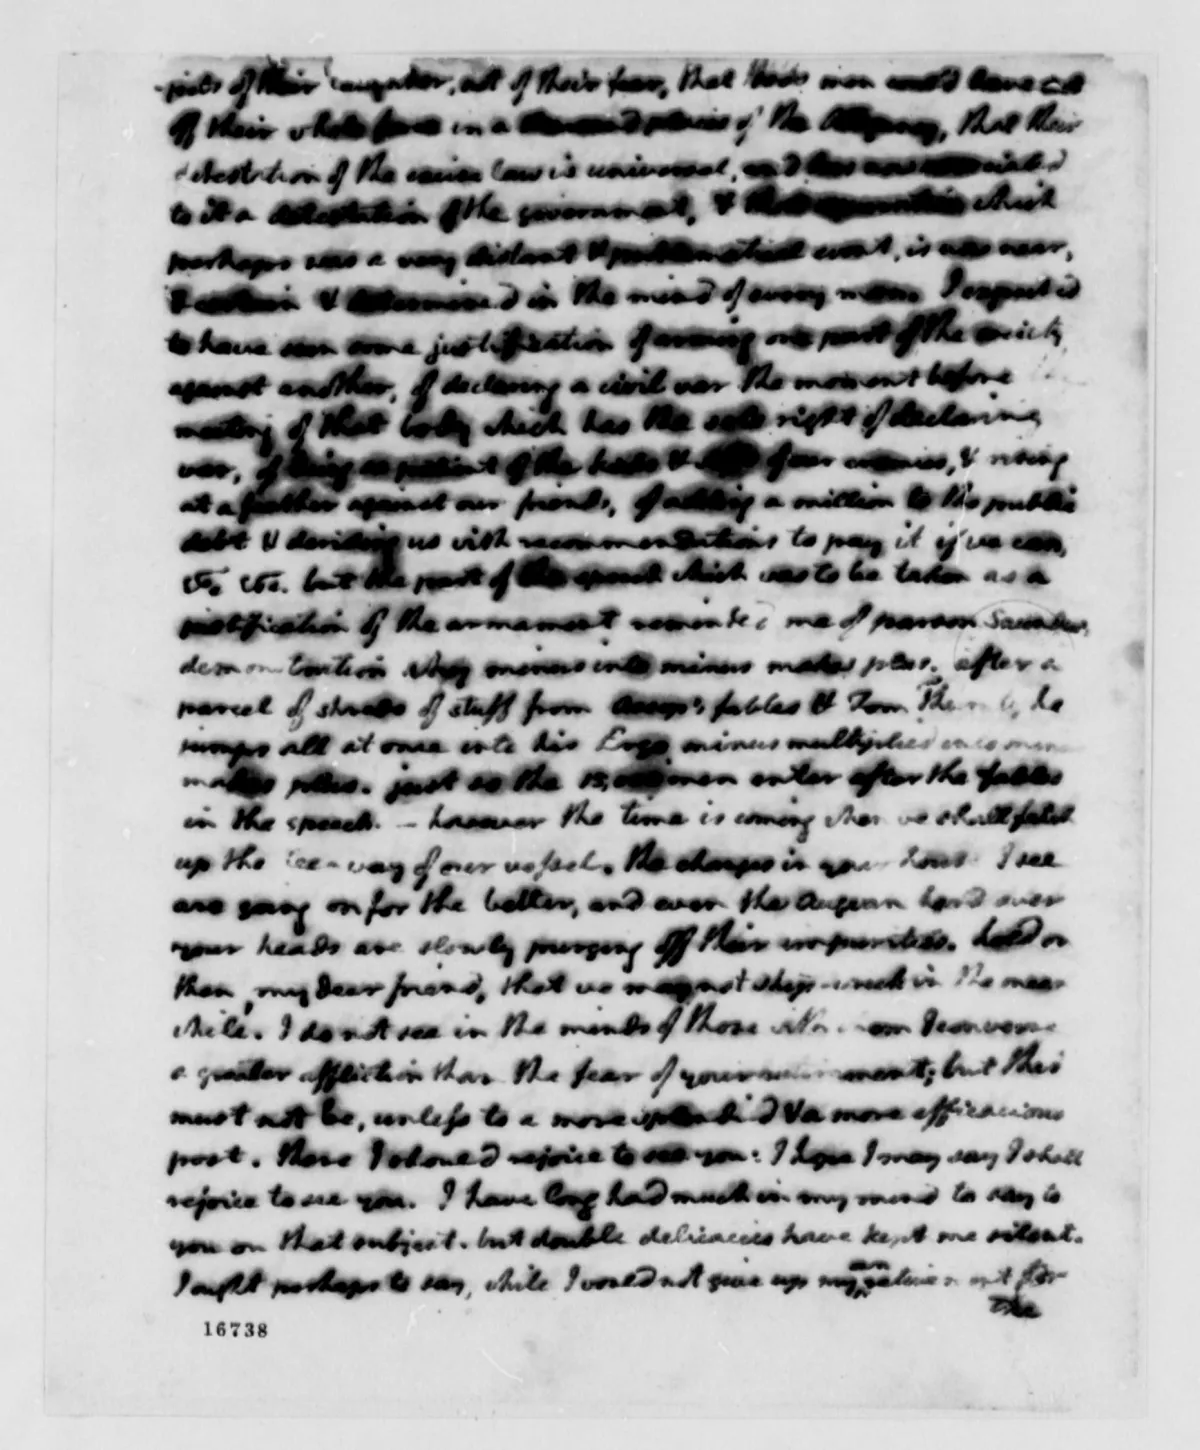 -jects of their laughter, not of their fear, that 1000 men could have cut
off their whole force in a thousand places of the Alleganey, that their
detestation of the excise law is universal, and has now associated
to it a detestation of the government, & that separation which
perhaps was a very distant & problematical event, is now near,
& certain & determined in the mind of every man. I expected
to have seen some justification of arming one part of the society
against another, of declaring a civil war the moment before
meeting of that body which has the sole right of declaring
war, of being so patient of the kicks & of our enemies, & rising
at a feather against our friends, of adding a million to the public
debt & deriding us with recommendations to pay it if we can,
&c. &c. but the part of the speech which was to be taken as a
justification of the armament reminded me of parson Saunders
demonstration why minus into minus makes plus. after a
parcel of shreds of stuff from Aesop's fables & Tom Thumb, he
jumps all at once into his Ergo, minus multiplied into minus
makes plus. just so the 15,000 men enter after the fables
in the speech. — however the time is coming when we shall fetch
up the lee-way of our vessel. the changes in your house I see
are going on for the better, and even the Augean herd over
your heads are slowly purging off their impurities. hold on
then, my dear friend, that we may not ship-wreck in the mean
while. I do not see in the minds of those with whom I converse
a greater affliction than the fear of your retirement; but this
must not be, unless to a more splendid & a more efficacious
post. there I should rejoice to see you: I hope I may say I shall
rejoice to see you. I have long had much in my mind to say to
you on that subject. but double delicacies have kept me silent.
I ought perhaps to say, while I would not give up my own retirement for
the
16738